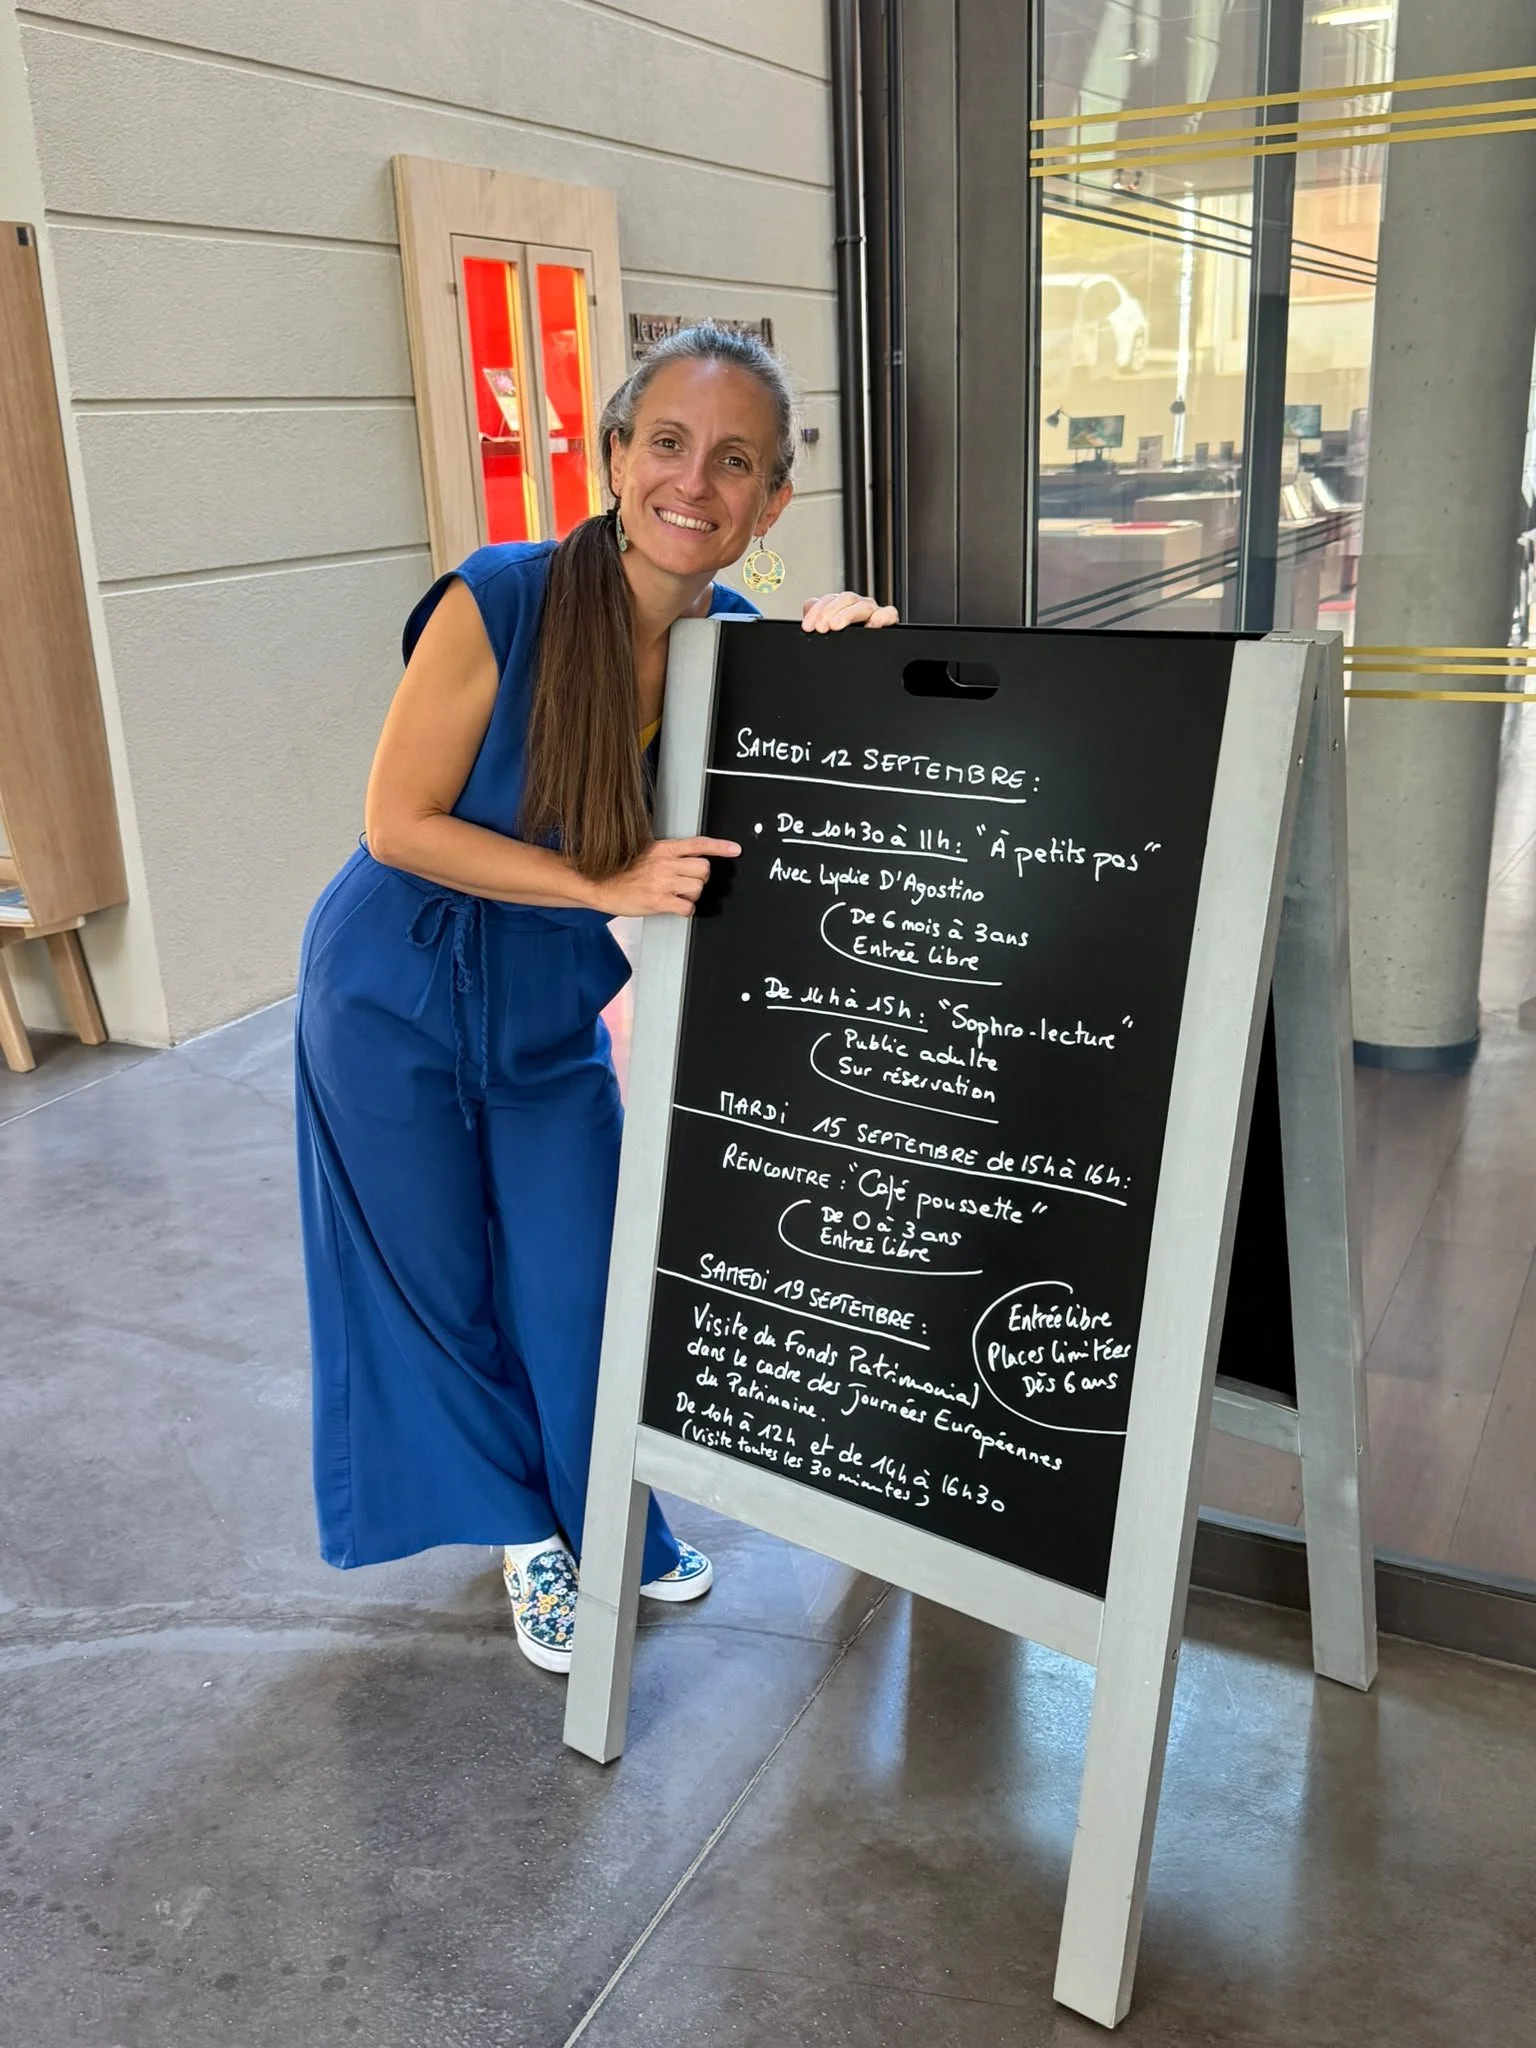 SAMEDI 12 SEPTEMBRE :
• De 10h30 à 11h : "À petits pas"
Avec Lydie D'Agostino
De 6 mois à 3 ans
Entrée libre
• De 14h à 15h : "Sophro-lecture"
Public adulte
Sur réservation
MARDI 15 SEPTEMBRE de 15h à 16h :
RENCONTRE : "Café poussette"
De 0 à 3 ans
Entrée libre
SAMEDI 19 SEPTEMBRE :
Visite du Fonds Patrimonial
dans le cadre des Journées Européennes
du Patrimoine.
De 10h à 12h et de 14h à 16h30
(Visite toutes les 30 minutes)
Entrée libre
Places limitées
Dès 6 ans